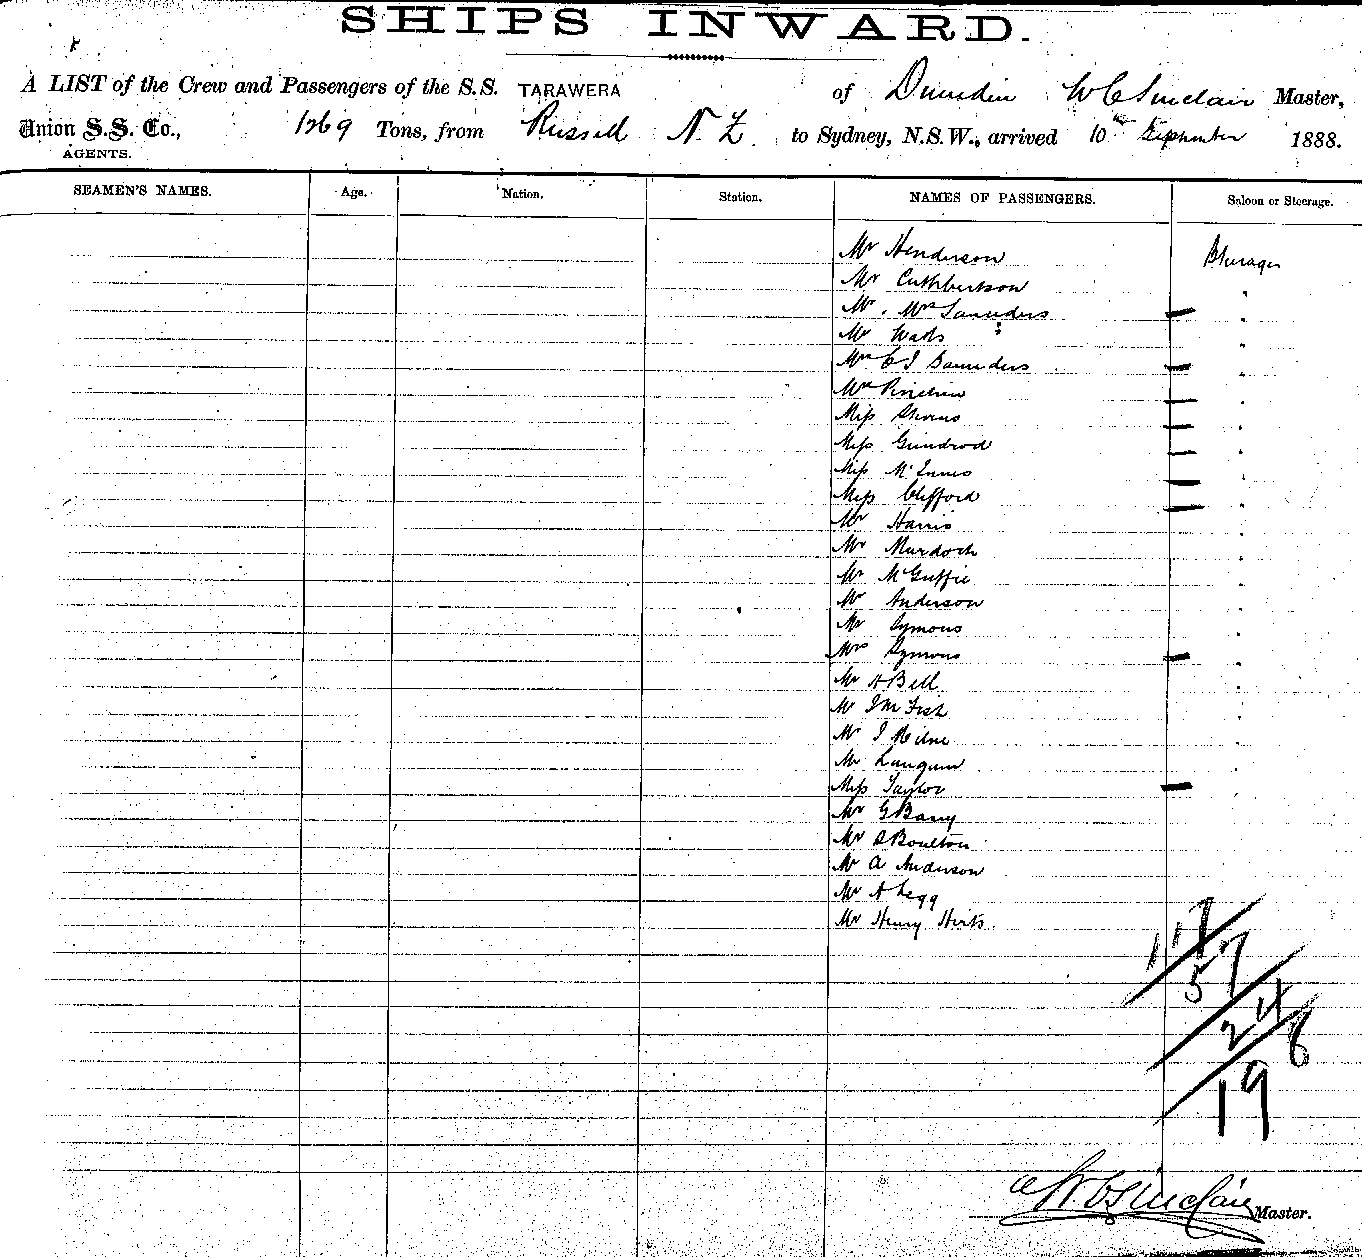 SHIPS INWARD.
A LIST of the Crew and Passengers of the S.S. TARAWERA of Dunedin W C Sinclair Master,
Union S.S. Co., 1269 Tons, from Russell N.Z. to Sydney, N.S.W., arrived 10th September 1888.
AGENTS.
SEAMEN'S NAMES. Age. Nation. Station. NAMES OF PASSENGERS. Saloon or Steerage.
Mr Henderson Steerage
Mr Cuthbertson "
Mr . Mrs Saunders "
Mr "
Mrs C J Saunders "
Mrs "
Miss Stevens "
Miss Grindrod "
Miss McInnis "
Miss Clifford "
Mr Harris "
Mr Murdoch "
Mr McGuffie "
Mr Anderson "
Mr Symons "
Mrs Symons "
Mr H Bell "
Mr J M Fish "
Mr J Milne "
Mr "
Miss Taylor
Mr G Barry
Mr Boulton
Mr A Anderson
Mr A Legg
Mr Henry
117
57
24
8
19
W C Sinclair Master.